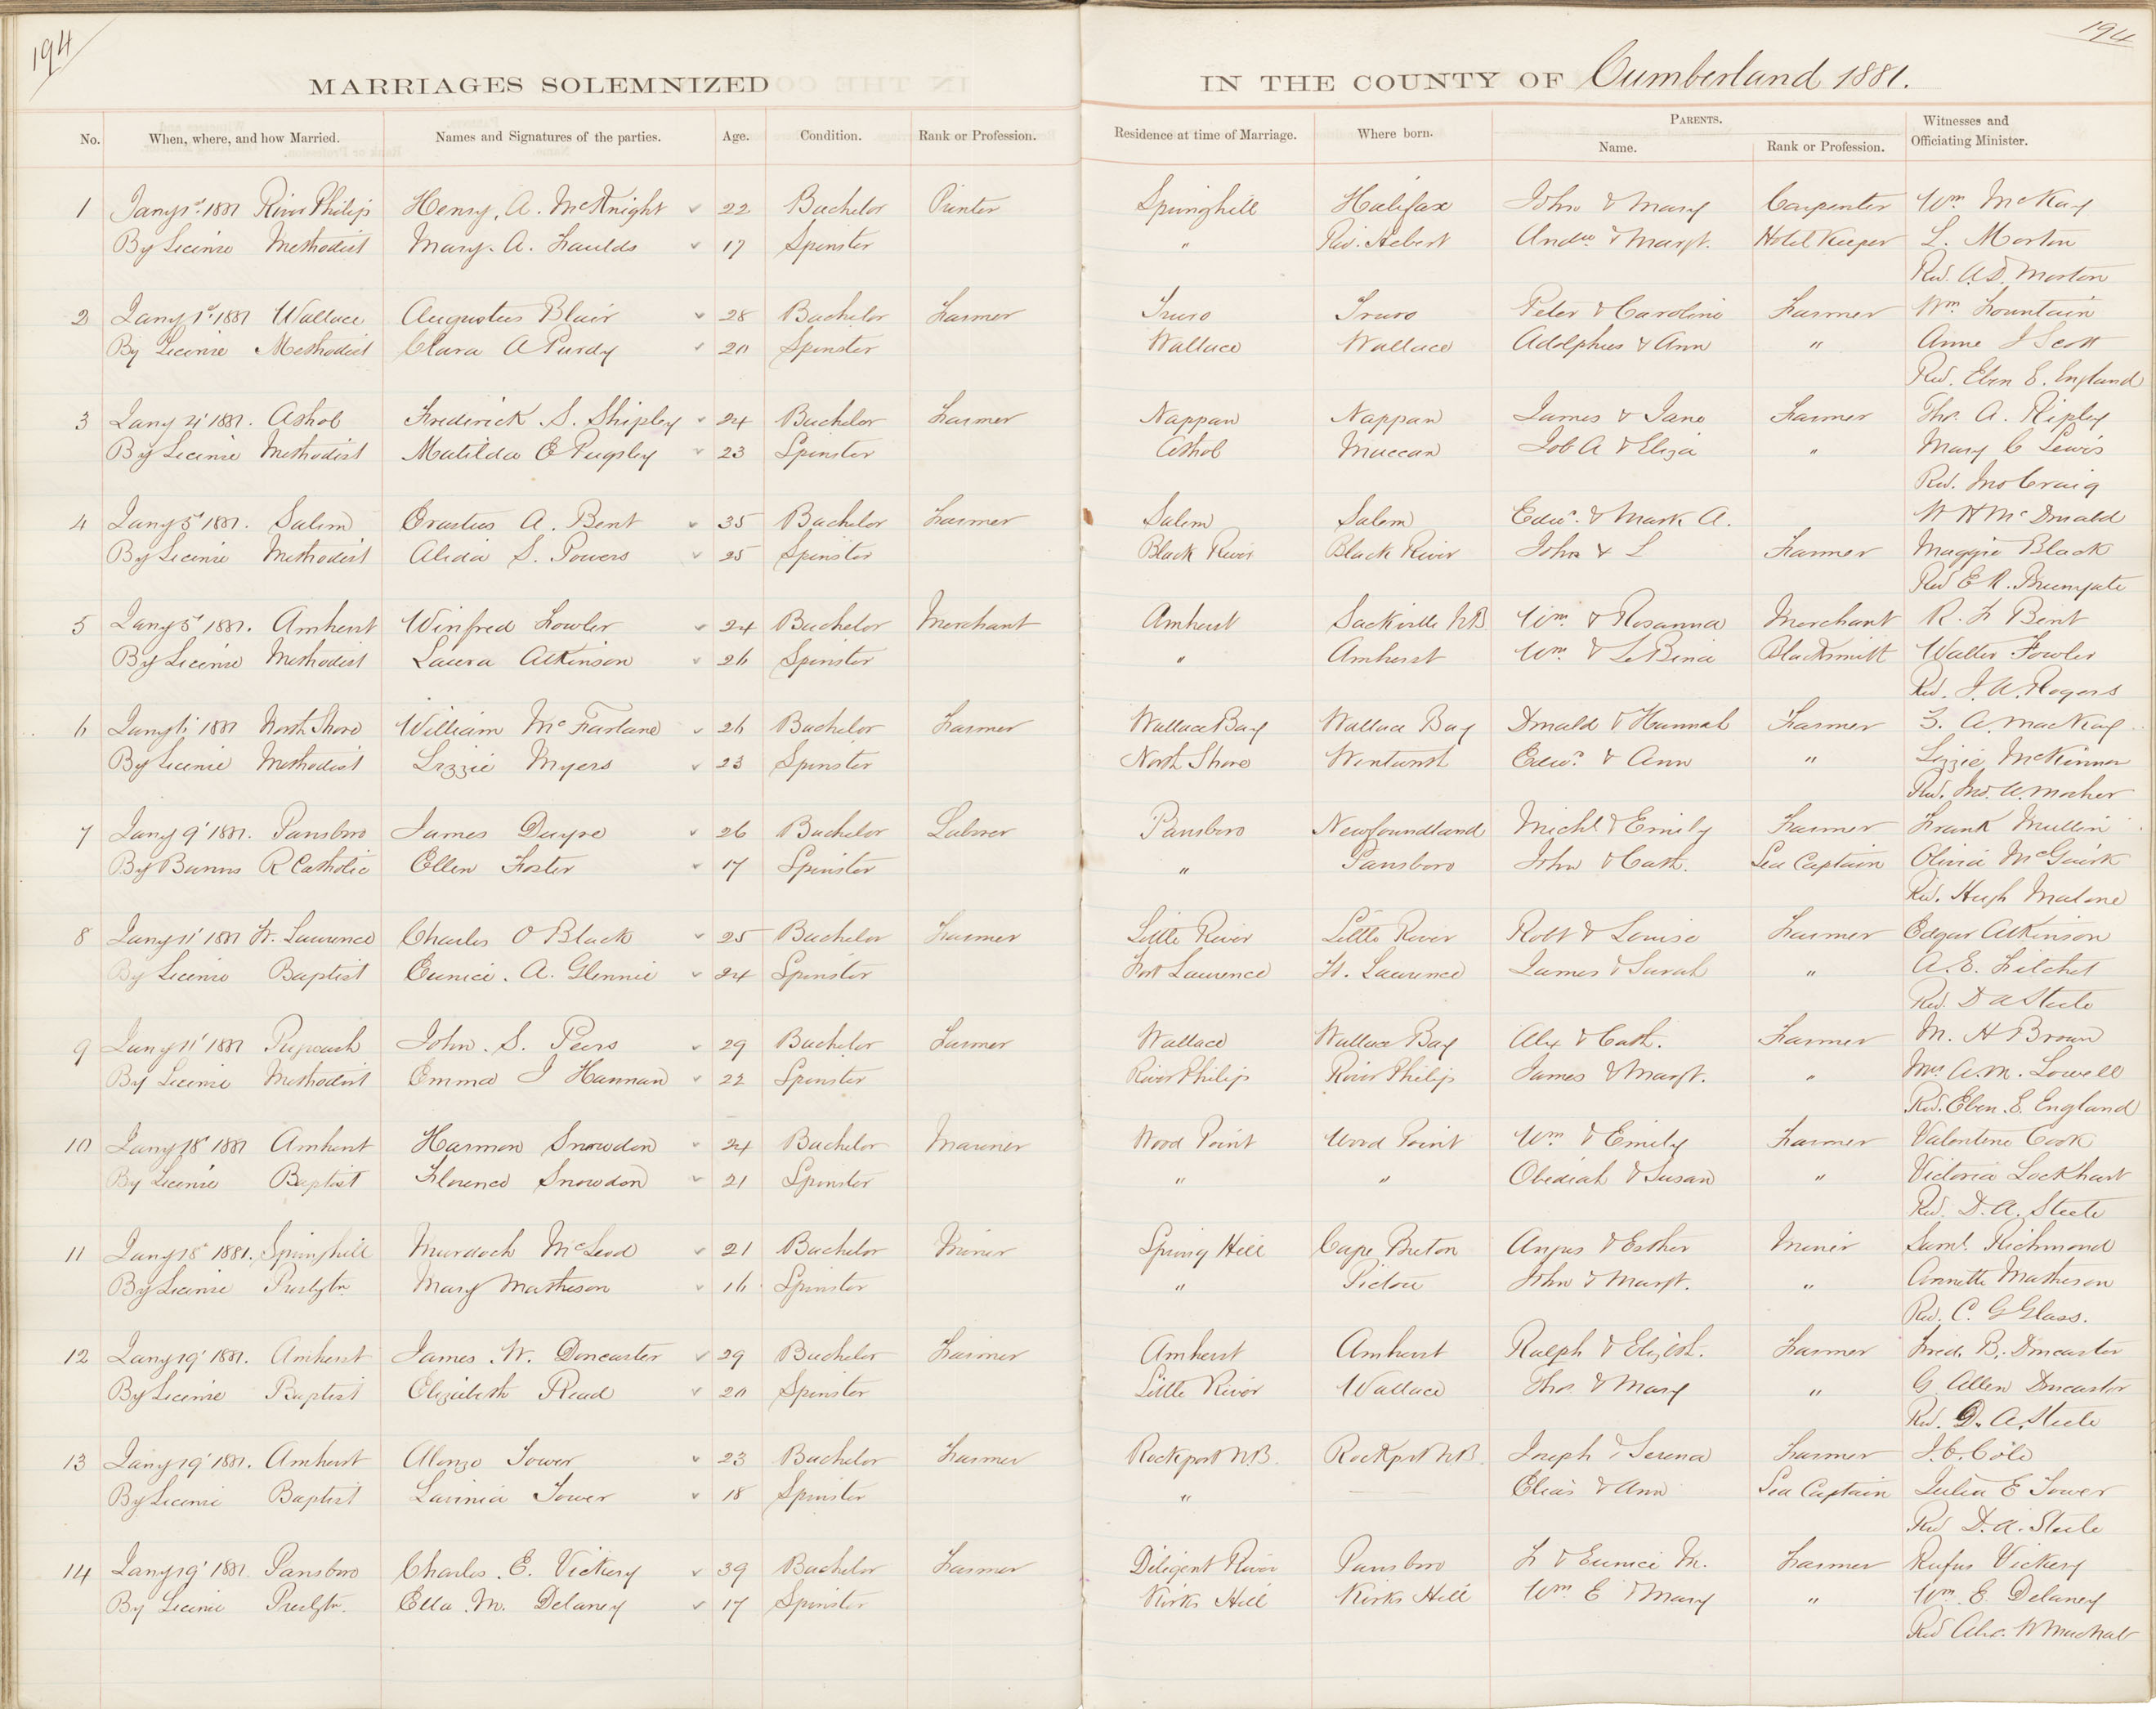 194
194
MARRIAGES SOLEMNIZED IN THE COUNTY OF Cumberland 1881.
No. When, where, and how Married. Names and Signatures of the parties. Age. Condition. Rank or Profession. Residence at time of Marriage. Where born. PARENTS. Name. Rank or Profession. Witnesses and Officiating Minister.
1 Jany 1st 1881 River Philip Henry. A. McKnight 22 Bachelor Printer Springhill Halifax John & Mary Carpenter Wm McKay
By License Methodist Mary. A. Faulds 17 Spinster " Riv. Hebert Andw & Margt. Hotel Keeper L. Morton
Rev. A.D. Morton
2 Jany 1st 1881 Wallace Augustus Blair 28 Bachelor Farmer Truro Truro Peter & Caroline Farmer Wm. Fountain
By License Methodist Clara A Purdy 20 Spinster Wallace Wallace Adolphus & Ann " Anne J Scott
Rev. Eben E. England
3 Jany 4' 1881. Athol Frederick S. Shipley 24 Bachelor Farmer Nappan Nappan James & Jane Farmer Thos. A. Ripley
By License Methodist Matilda E Pugsley 23 Spinster Athol Maccan Job A & Eliza " Mary C Lewis
Rev. Jno Craig
4 Jany 5' 1881. Salem Erastus A. Bent 35 Bachelor Farmer Salem Salem Edwd. & Mark A. W H McDonald
By License Methodist Alida S. Powers 25 Spinster Black River Black River John & L Farmer Maggie Black
Rev E R. Brunyate
5 Jany 5' 1881. Amherst Winfred Fowler 24 Bachelor Merchant Amherst Sackville N.B. Wm. & Rosanna Merchant R. F Bent
By License Methodist Laura Atkinson 26 Spinster " Amherst Wm. & LeBina Blacksmith Walter Fowler
Rev. J. A. Rogers
6 Jany 6' 1881 North Shore William McFarlane 26 Bachelor Farmer Wallace Bay Wallace Bay Donald & Hannah Farmer A. MacKay
By License Methodist Lizzie Myers 23 Spinster North Shore Edwd. & Ann " Lizzie McKinnon
Rev. Jno. A. Mosher
7 Jany 9' 1881. Parrsboro James Dwyre 26 Bachelor Laborer Parrsboro Newfoundland Michl & Emily Farmer Frank Mullin
By Banns R Catholic Ellen Foster 17 Spinster " Parrsboro John & Cath. Sea Captain Olivia McGuirk
Rev. Hugh Malone
8 Jany 11' 1881 Ft. Lawrence Charles O Black 25 Bachelor Farmer Little River Little River Robt & Louise Farmer Edgar Atkinson
By License Baptist Eunice. A. Glennie 24 Spinster Fort Lawrence Ft. Lawrence James & Sarah " A. E. Fitchet
Rev. D A Steele
9 Jany 11' 1881 Pugwash John. S. Peers 29 Bachelor Farmer Wallace Wallace Bay Alex & Cath. Farmer M. H Brown
By License Methodist Emma J Hannan 22 Spinster River Philip River Philip James & Margt. " Mrs A.M. Lowell
Rev. Eben. E. England
10 Jany 18' 1881 Amherst Harmon Snowdon 24 Bachelor Mariner Wood Point Wood Point Wm & Emily Farmer Valentine Cook
By License Baptist Florence Snowdon 21 Spinster " " Obediah & Susan " Victoria Lockhart
Rev. D. A. Steele
11 Jany 18' 1881. Springhill Murdoch McLeod 21 Bachelor Miner Spring Hill Cape Breton Angus & Esther Miner Saml. Richmond
By License Presbytn Mary Matheson 16 Spinster " Pictou John & Margt. " Annette Matheson
Rev. C. G Glass.
12 Jany 19' 1881. Amherst James. W. Doncaster 29 Bachelor Farmer Amherst Amherst Ralph & Elizbth. Farmer Fred. B. Doncaster
By License Baptist Elizabeth Read 20 Spinster Little River Wallace Thos. & Mary " G. Allen Doncaster
Rev. D. A. Steele
13 Jany 19' 1881. Amherst Alonzo Tower 23 Bachelor Farmer Rockport N.B. Rockport N.B. Joseph & Serena Farmer J. C. Cole
By License Baptist Lavinia Tower 18 Spinster " Elias & Ann Sea Captain Julia E Tower
Rev D. A. Steele
14 Jany 19' 1881. Parrsboro Charles. E. Vickery 39 Bachelor Farmer Diligent River Parrsboro F & Eunice M. Farmer Rufus Vickery
By License Presbytn. Ella. M. Delaney 17 Spinster Kirks Hill Kirks Hill Wm E & Mary " Wm. E. Delaney
Rev Alex.